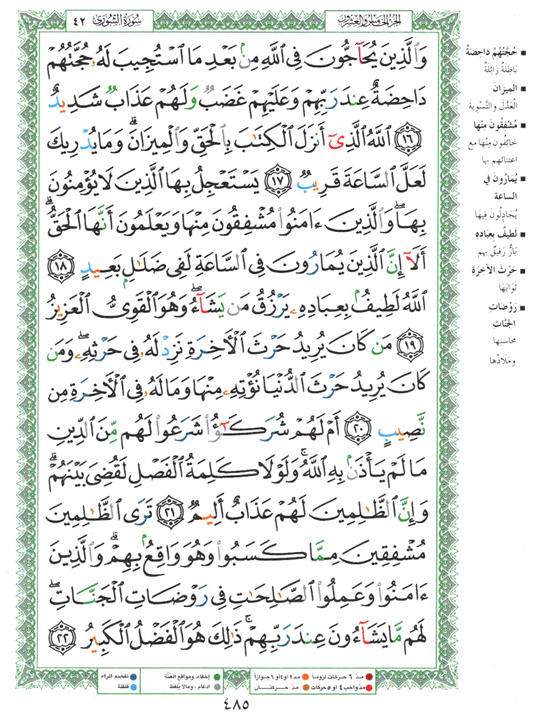 الجزء الخامس والعشرون
سورة الشورى
٤٢
وَالَّذِينَ يُحَاجُّونَ فِي اللَّهِ مِنۢ بَعْدِ مَا اسْتُجِيبَ لَهُ حُجَّتُهُمْ
دَاحِضَةٌ عِندَ رَبِّهِمْ وَعَلَيْهِمْ غَضَبٌ وَلَهُمْ عَذَابٌ شَدِيدٌ
١٦ اللَّهُ الَّذِي أَنزَلَ الْكِتَٰبَ بِالْحَقِّ وَالْمِيزَانَ ۗ وَمَا يُدْرِيكَ
لَعَلَّ السَّاعَةَ قَرِيبٌ ١٧ يَسْتَعْجِلُ بِهَا الَّذِينَ لَا يُؤْمِنُونَ
بِهَا ۖ وَالَّذِينَ ءَامَنُوا مُشْفِقُونَ مِنْهَا وَيَعْلَمُونَ أَنَّهَا الْحَقُّ ۗ
أَلَآ إِنَّ الَّذِينَ يُمَارُونَ فِي السَّاعَةِ لَفِي ضَلَٰلٍ بَعِيدٍ ١٨
اللَّهُ لَطِيفٌۢ بِعِبَادِهِۦ يَرْزُقُ مَن يَشَآءُ ۖ وَهُوَ الْقَوِيُّ الْعَزِيزُ
١٩ مَن كَانَ يُرِيدُ حَرْثَ الْآخِرَةِ نَزِدْ لَهُۥ فِي حَرْثِهِۦ ۖ وَمَن
كَانَ يُرِيدُ حَرْثَ الدُّنْيَا نُؤْتِهِۦ مِنْهَا وَمَا لَهُۥ فِي الْآخِرَةِ مِن
نَّصِيبٍ ٢٠ أَمْ لَهُمْ شُرَكَٰٓؤُا شَرَعُوا لَهُم مِّنَ الدِّينِ
مَا لَمْ يَأْذَنۢ بِهِ اللَّهُ ۚ وَلَوْلَا كَلِمَةُ الْفَصْلِ لَقُضِيَ بَيْنَهُمْ ۗ
وَإِنَّ الظَّٰلِمِينَ لَهُمْ عَذَابٌ أَلِيمٌ ٢١ تَرَى الظَّٰلِمِينَ
مُشْفِقِينَ مِمَّا كَسَبُوا وَهُوَ وَاقِعٌۢ بِهِمْ ۗ وَالَّذِينَ
ءَامَنُوا وَعَمِلُوا الصَّالِحَاتِ فِي رَوْضَاتِ الْجَنَّاتِ ۖ
لَهُم مَّا يَشَآءُونَ عِندَ رَبِّهِمْ ۚ ذَٰلِكَ هُوَ الْفَضْلُ الْكَبِيرُ ٢٢
حُجَّتُهُمْ دَاحِضَةٌ
بَاطِلَةٌ زَائِلَةٌ
الْمِيزَانَ
الْعَدْلَ وَالتَّسْوِيَةَ
مُشْفِقُونَ مِنْهَا
خَائِفُونَ مِنْهَا مع
اعتنائهم بها
يُمَارُونَ فِي
السَّاعَةِ
يُجَادِلُونَ فِيهَا
لَطِيفٌ بِعِبَادِهِ
بَارٌّ رَفِيقٌ بهم
حَرْثَ الْآخِرَةِ
ثَوَابَهَا
رَوْضَاتِ
الْجَنَّاتِ
محاسنها
وملاذّها
مدّ ٦ حركات لزوماً
مدّ ٢ أو ٤ أو ٦ جوازاً
إخفاء، ومواقع الغنّة
تفخيم الراء
مدّ واجب ٤ أو ٥ حركات
مدّ حركتان
إدغام، وما لا يُلفظ
قلقلة
٤٨٥